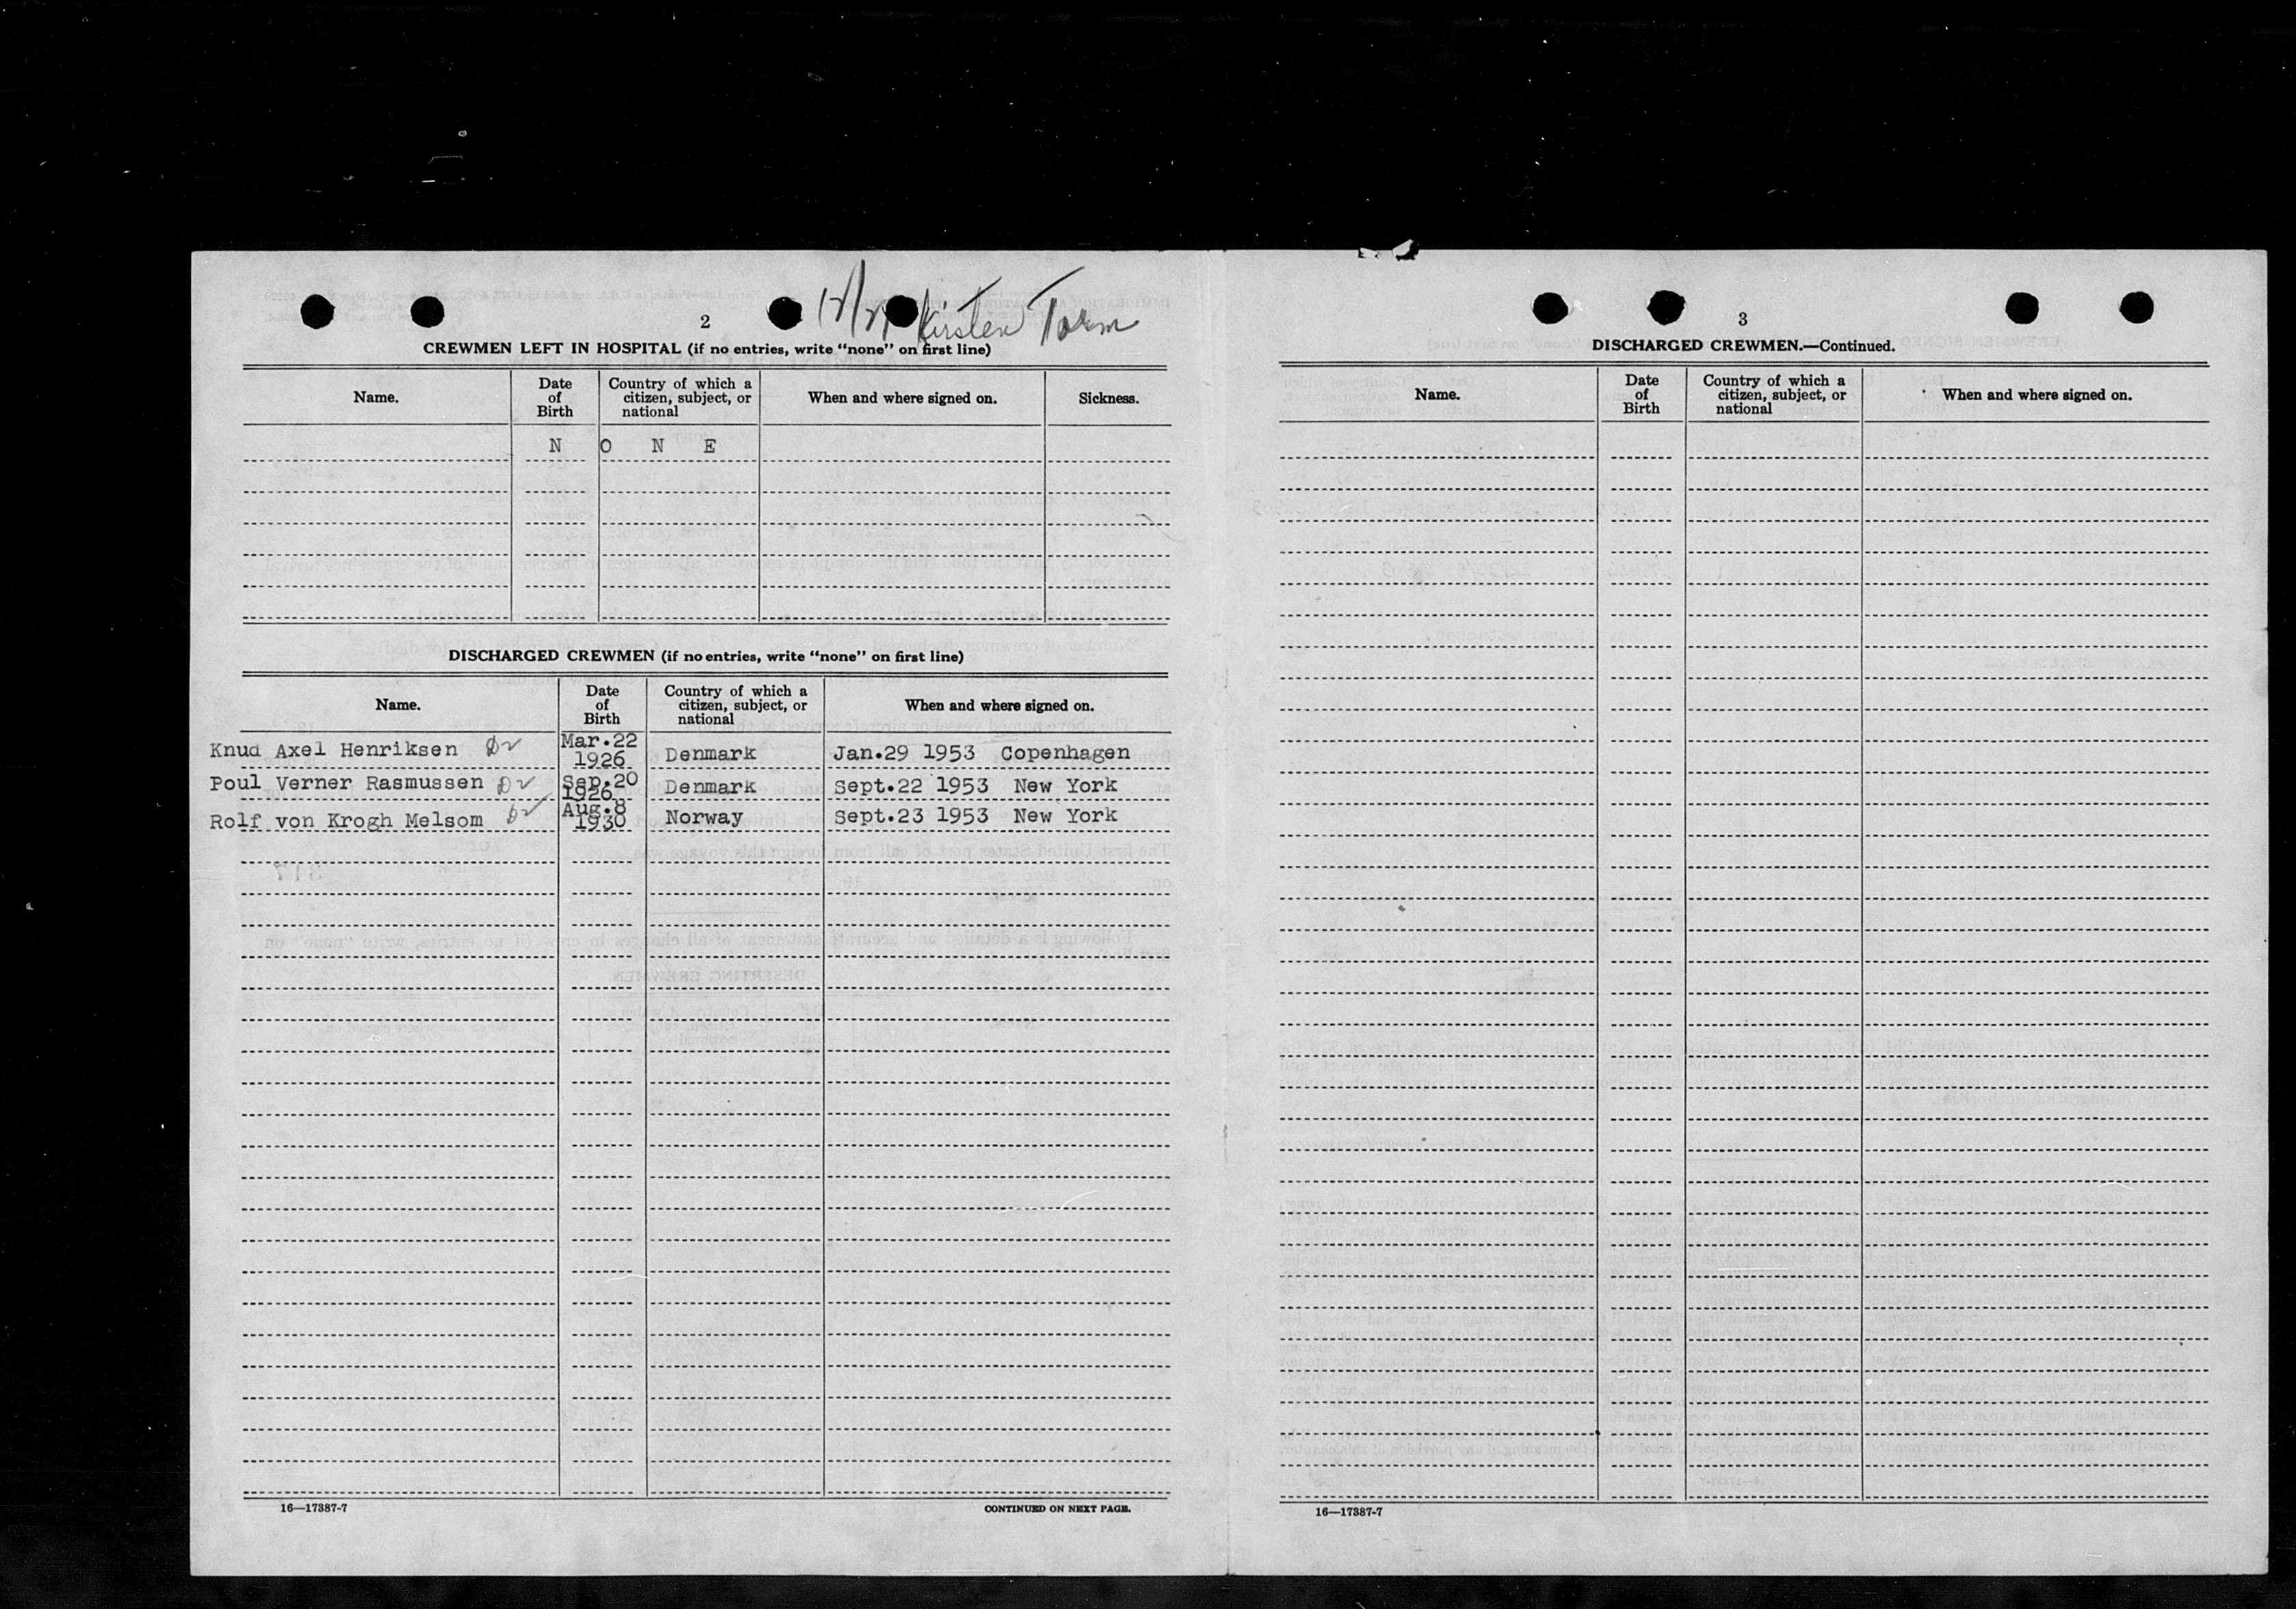 Kirsten Torm
2
CREWMEN LEFT IN HOSPITAL (if no entries, write “none” on first line)
Name.
Date of Birth
Country of which a citizen, subject, or national
When and where signed on.
Sickness.
N O N E
DISCHARGED CREWMEN (if no entries, write “none” on first line)
Name.
Date of Birth
Country of which a citizen, subject, or national
When and where signed on.
Knud Axel Henriksen Mar.22 1926 Denmark Jan.29 1953 Copenhagen
Poul Verner Rasmussen Sep.20 1926 Denmark Sept.22 1953 New York
Rolf von Krogh Melsom Aug.8 1930 Norway Sept.23 1953 New York
16—17387-7
CONTINUED ON NEXT PAGE.
3
DISCHARGED CREWMEN.—Continued.
Name.
Date of Birth
Country of which a citizen, subject, or national
When and where signed on.
16—17387-7